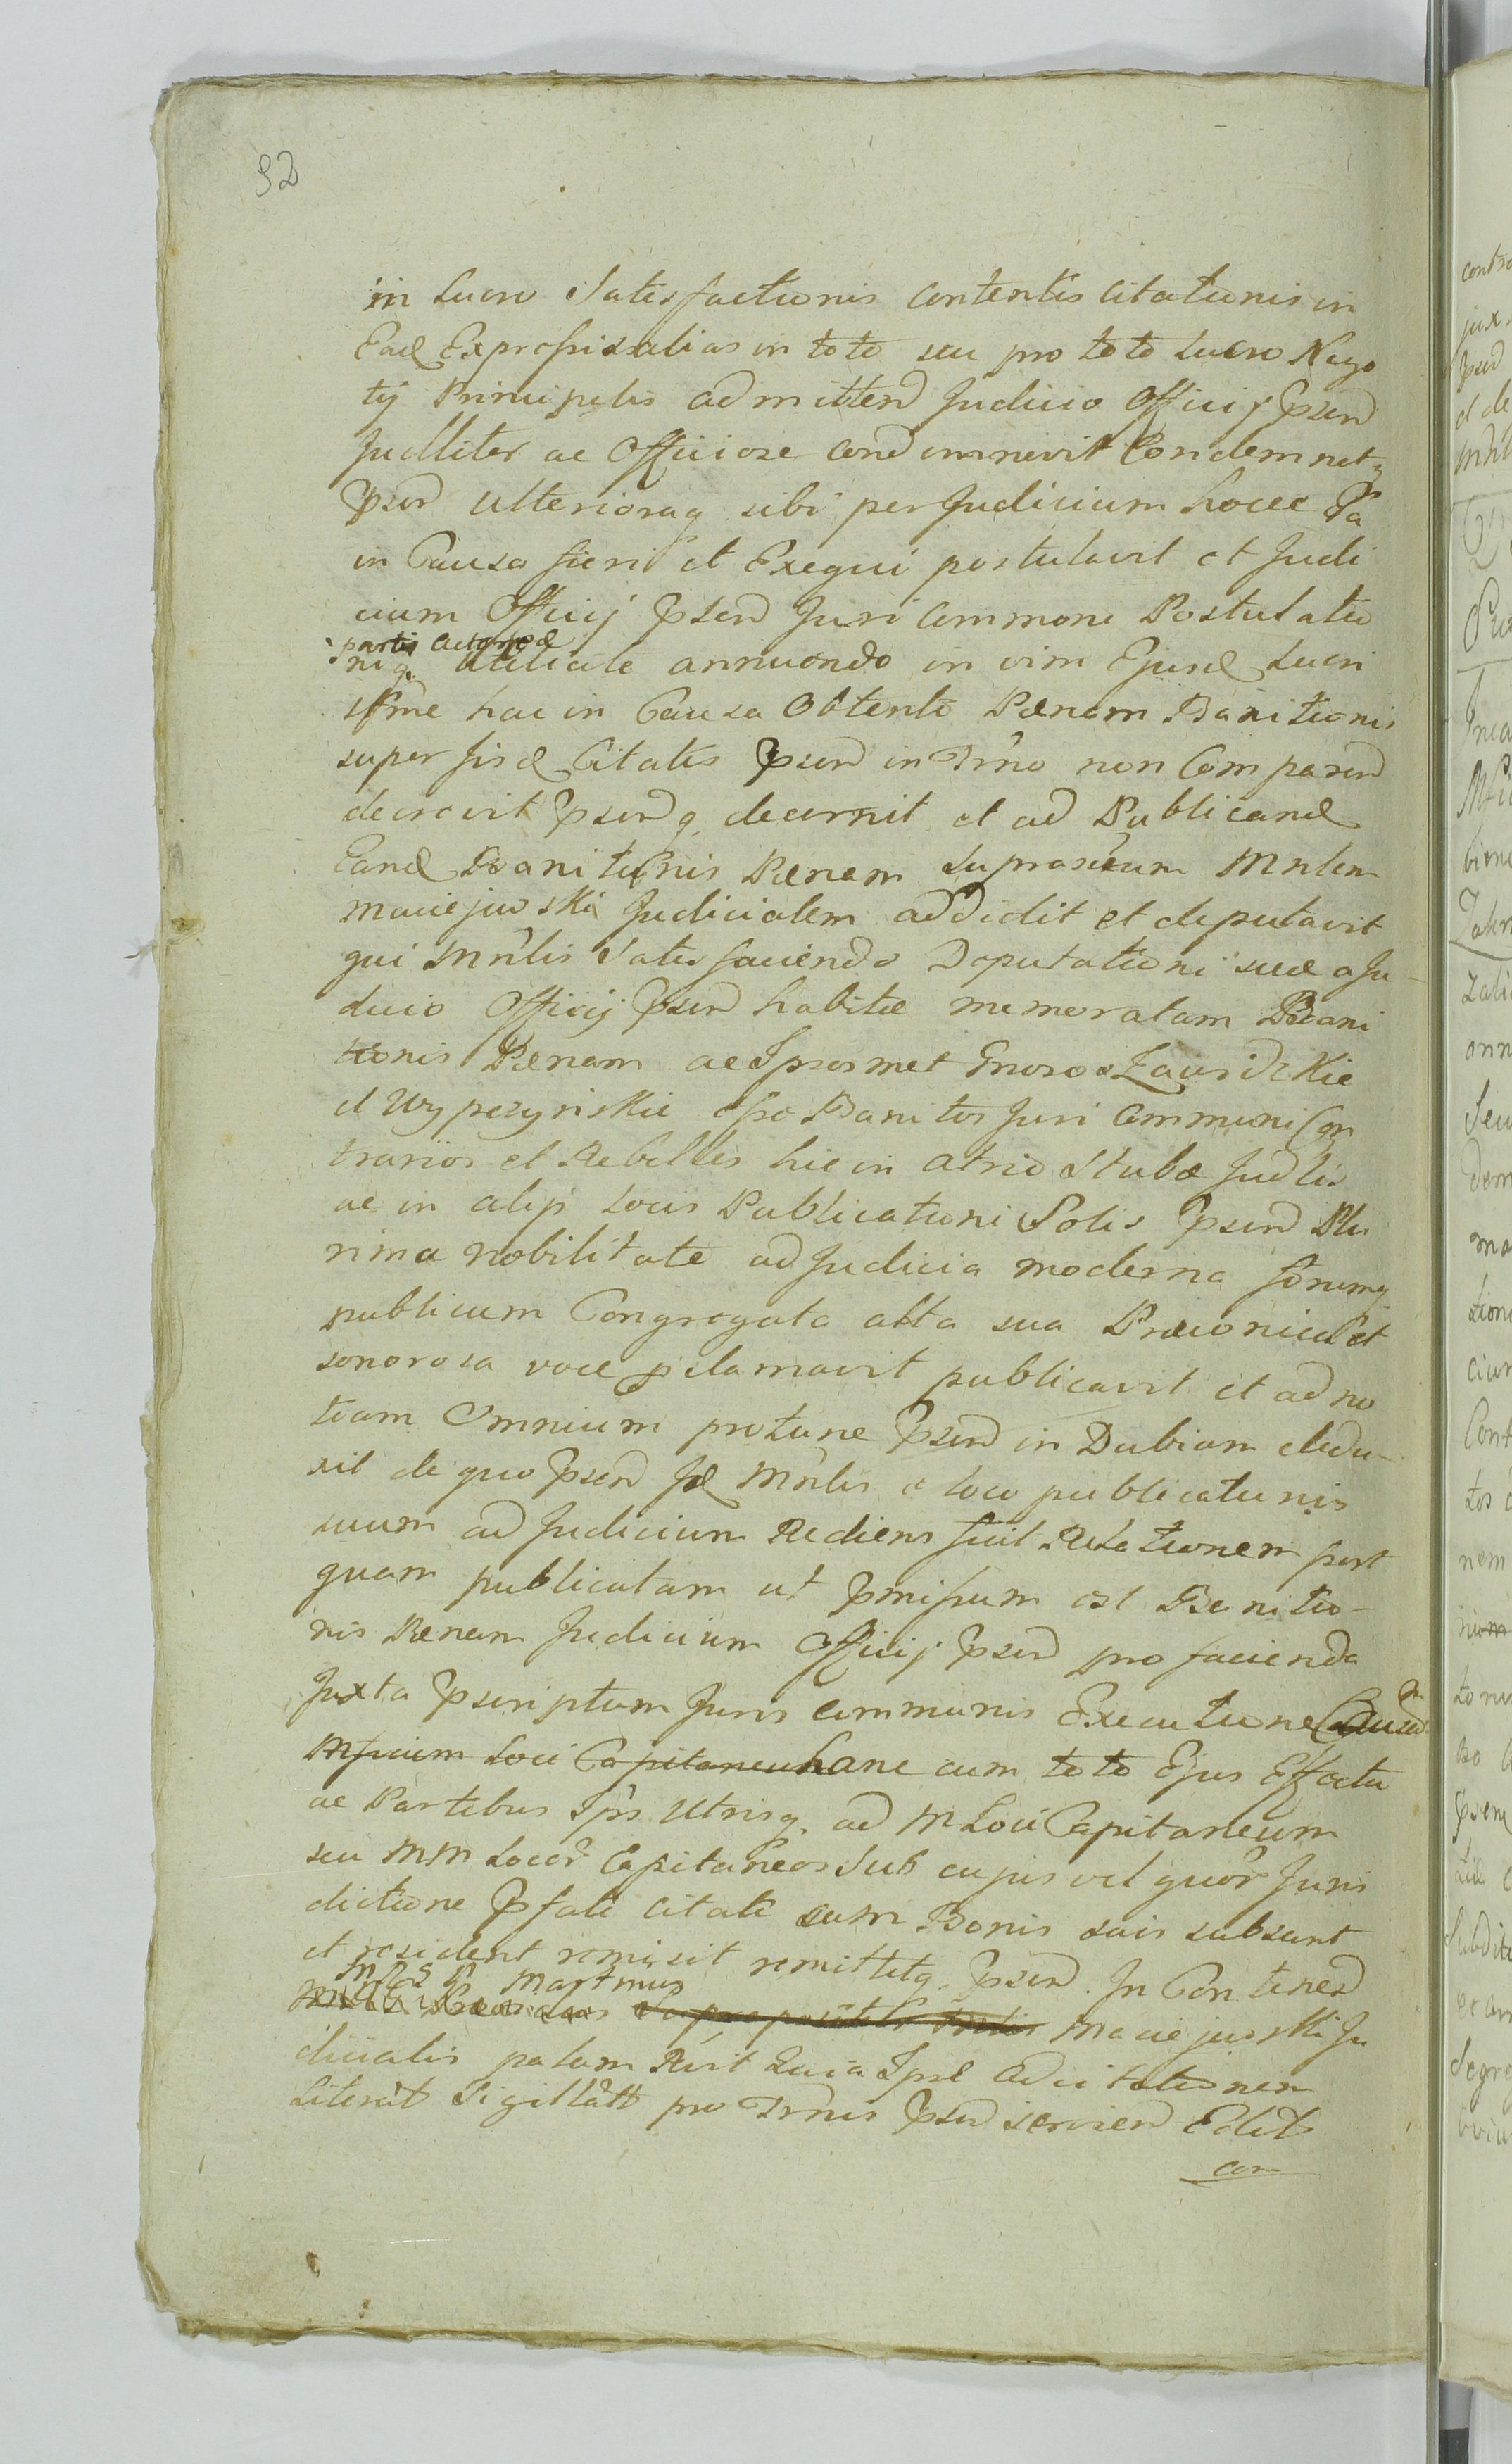 92
in Lucro Satisfactionis contentis citationis in
Ead Expressis alias in toto seu pro toto Lucro Nego
tij Principalis admittend Judicio Officij Psend
Judlliter ac Officiose condemnevit Condemnatq
Psend Ulterioraq sibi per Judicium hocce Pa
in Causa fieri et Exequi postulavit et Judi
cium Officij Psend Juri Commoni Postulatio
partis Actoreæ
niq. annuendo in vim Ejusd Lucri
hac in Causa Obtenti Pænam Banitionis
super Jisd Citatis Psend in Trno non Comparend
decrevit Psendq. decernit et ad Publicand
Eand Banitionis Pænam Suprascrum Mnlem
Maciejewski Judicialem addidit et deputavit
qui Mnlis Satisfaciendo Deputationi suæ a Ju
dicio Officij Psend habitæ memoratam Bani
tionis Pænam ac Ipsosmet Gnosos Zawidzkie
et Wypczynskie Banitos Juri Communi Con
trarios et Rebelles hic in atrio Stubæ Judlis
ac in alijs Locis Publicationi Solis Psend Plu
rima Nobilitate ad Judicia moderna forumq
publicum Congregata alta sua Præconica et
sonorosa voce pclamavit publicavit et ad no
tiam Omnium protunc Psend in Dubiam dedu
xit de quo Psend Jd Mnlis e loco publicationis
suum ad Judicium Rediens fecit Relationem post
quam publicatam ut Pmissum est Banitio
nis Pænam Judicium Officij Psend pro facienda
Juxta Pscriptum Juris Communis Executione Causam
Loci Capitaneum hanc cum toto Ejus Effectu
ac Partibus Ips Utrisq. ad M Loci Capitaneum
seu MM Locor Capitaneos Sub cujus vel quor Juris
dictione Pfati Citati cum Bonis suis subsunt
et resident remisit remittitq. Psend. In Contined
Martinus
Maciejewski Ju
dicialis palam Rvit Quia Ipse Ad citationem
Literat Sigillatt pro Trnis Psend servien Edit
con